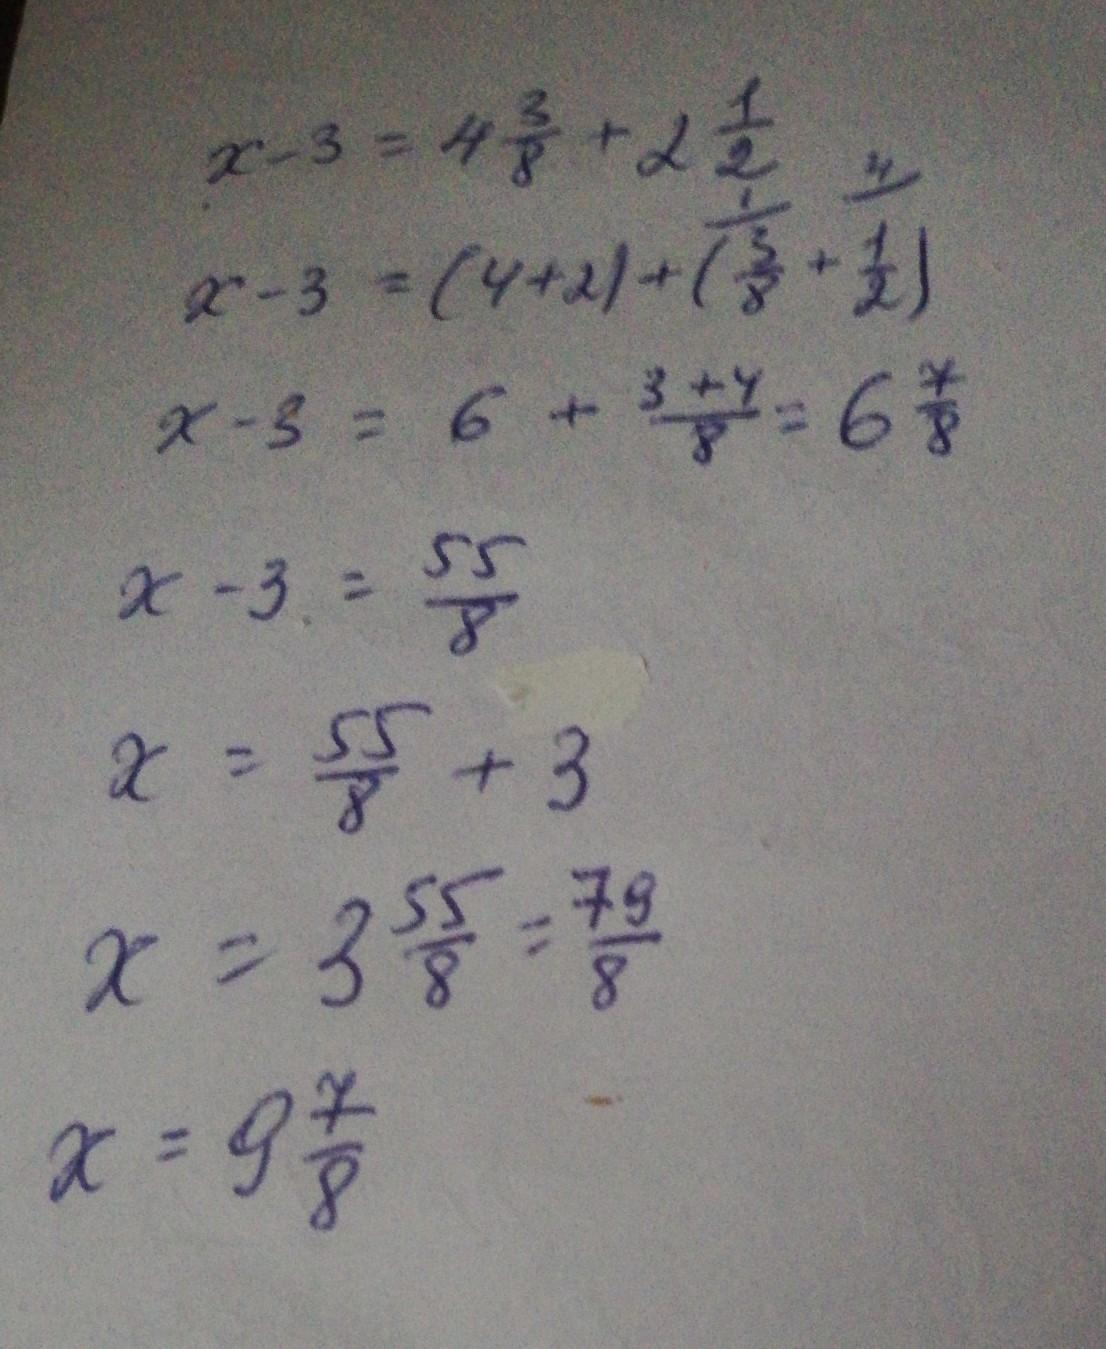 x - 3 = 4 3/8 + 2 1/2
x - 3 = (4+2) + (3/8 + 1/2)
x - 3 = 6 + 3+4/8 = 6 7/8
x - 3 = 55/8
x = 55/8 + 3
x = 3 55/8 = 79/8
x = 9 7/8